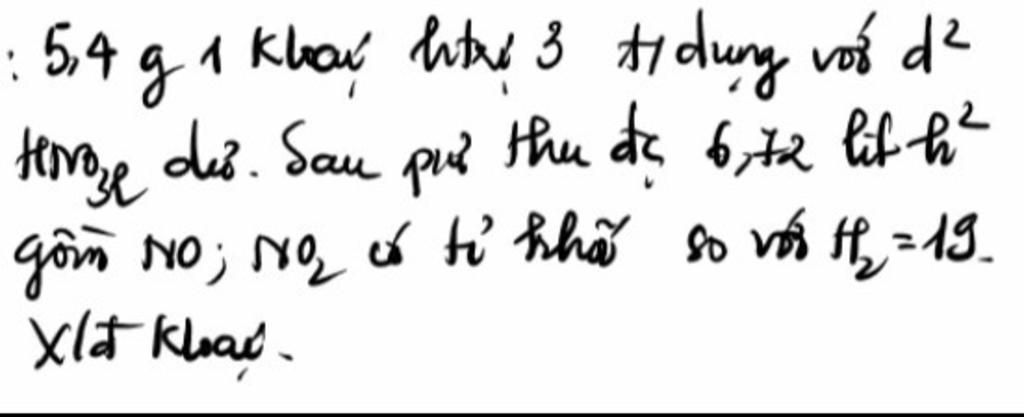 : 5,4 g 1 Kloại htrị 3 t/dụng với d²
HNO₃ℓ dư. Sau pư thu đc 6,72 lít h²
gồm NO; NO₂ có tỉ khối so với H₂ = 19.
X/đ Kloại.